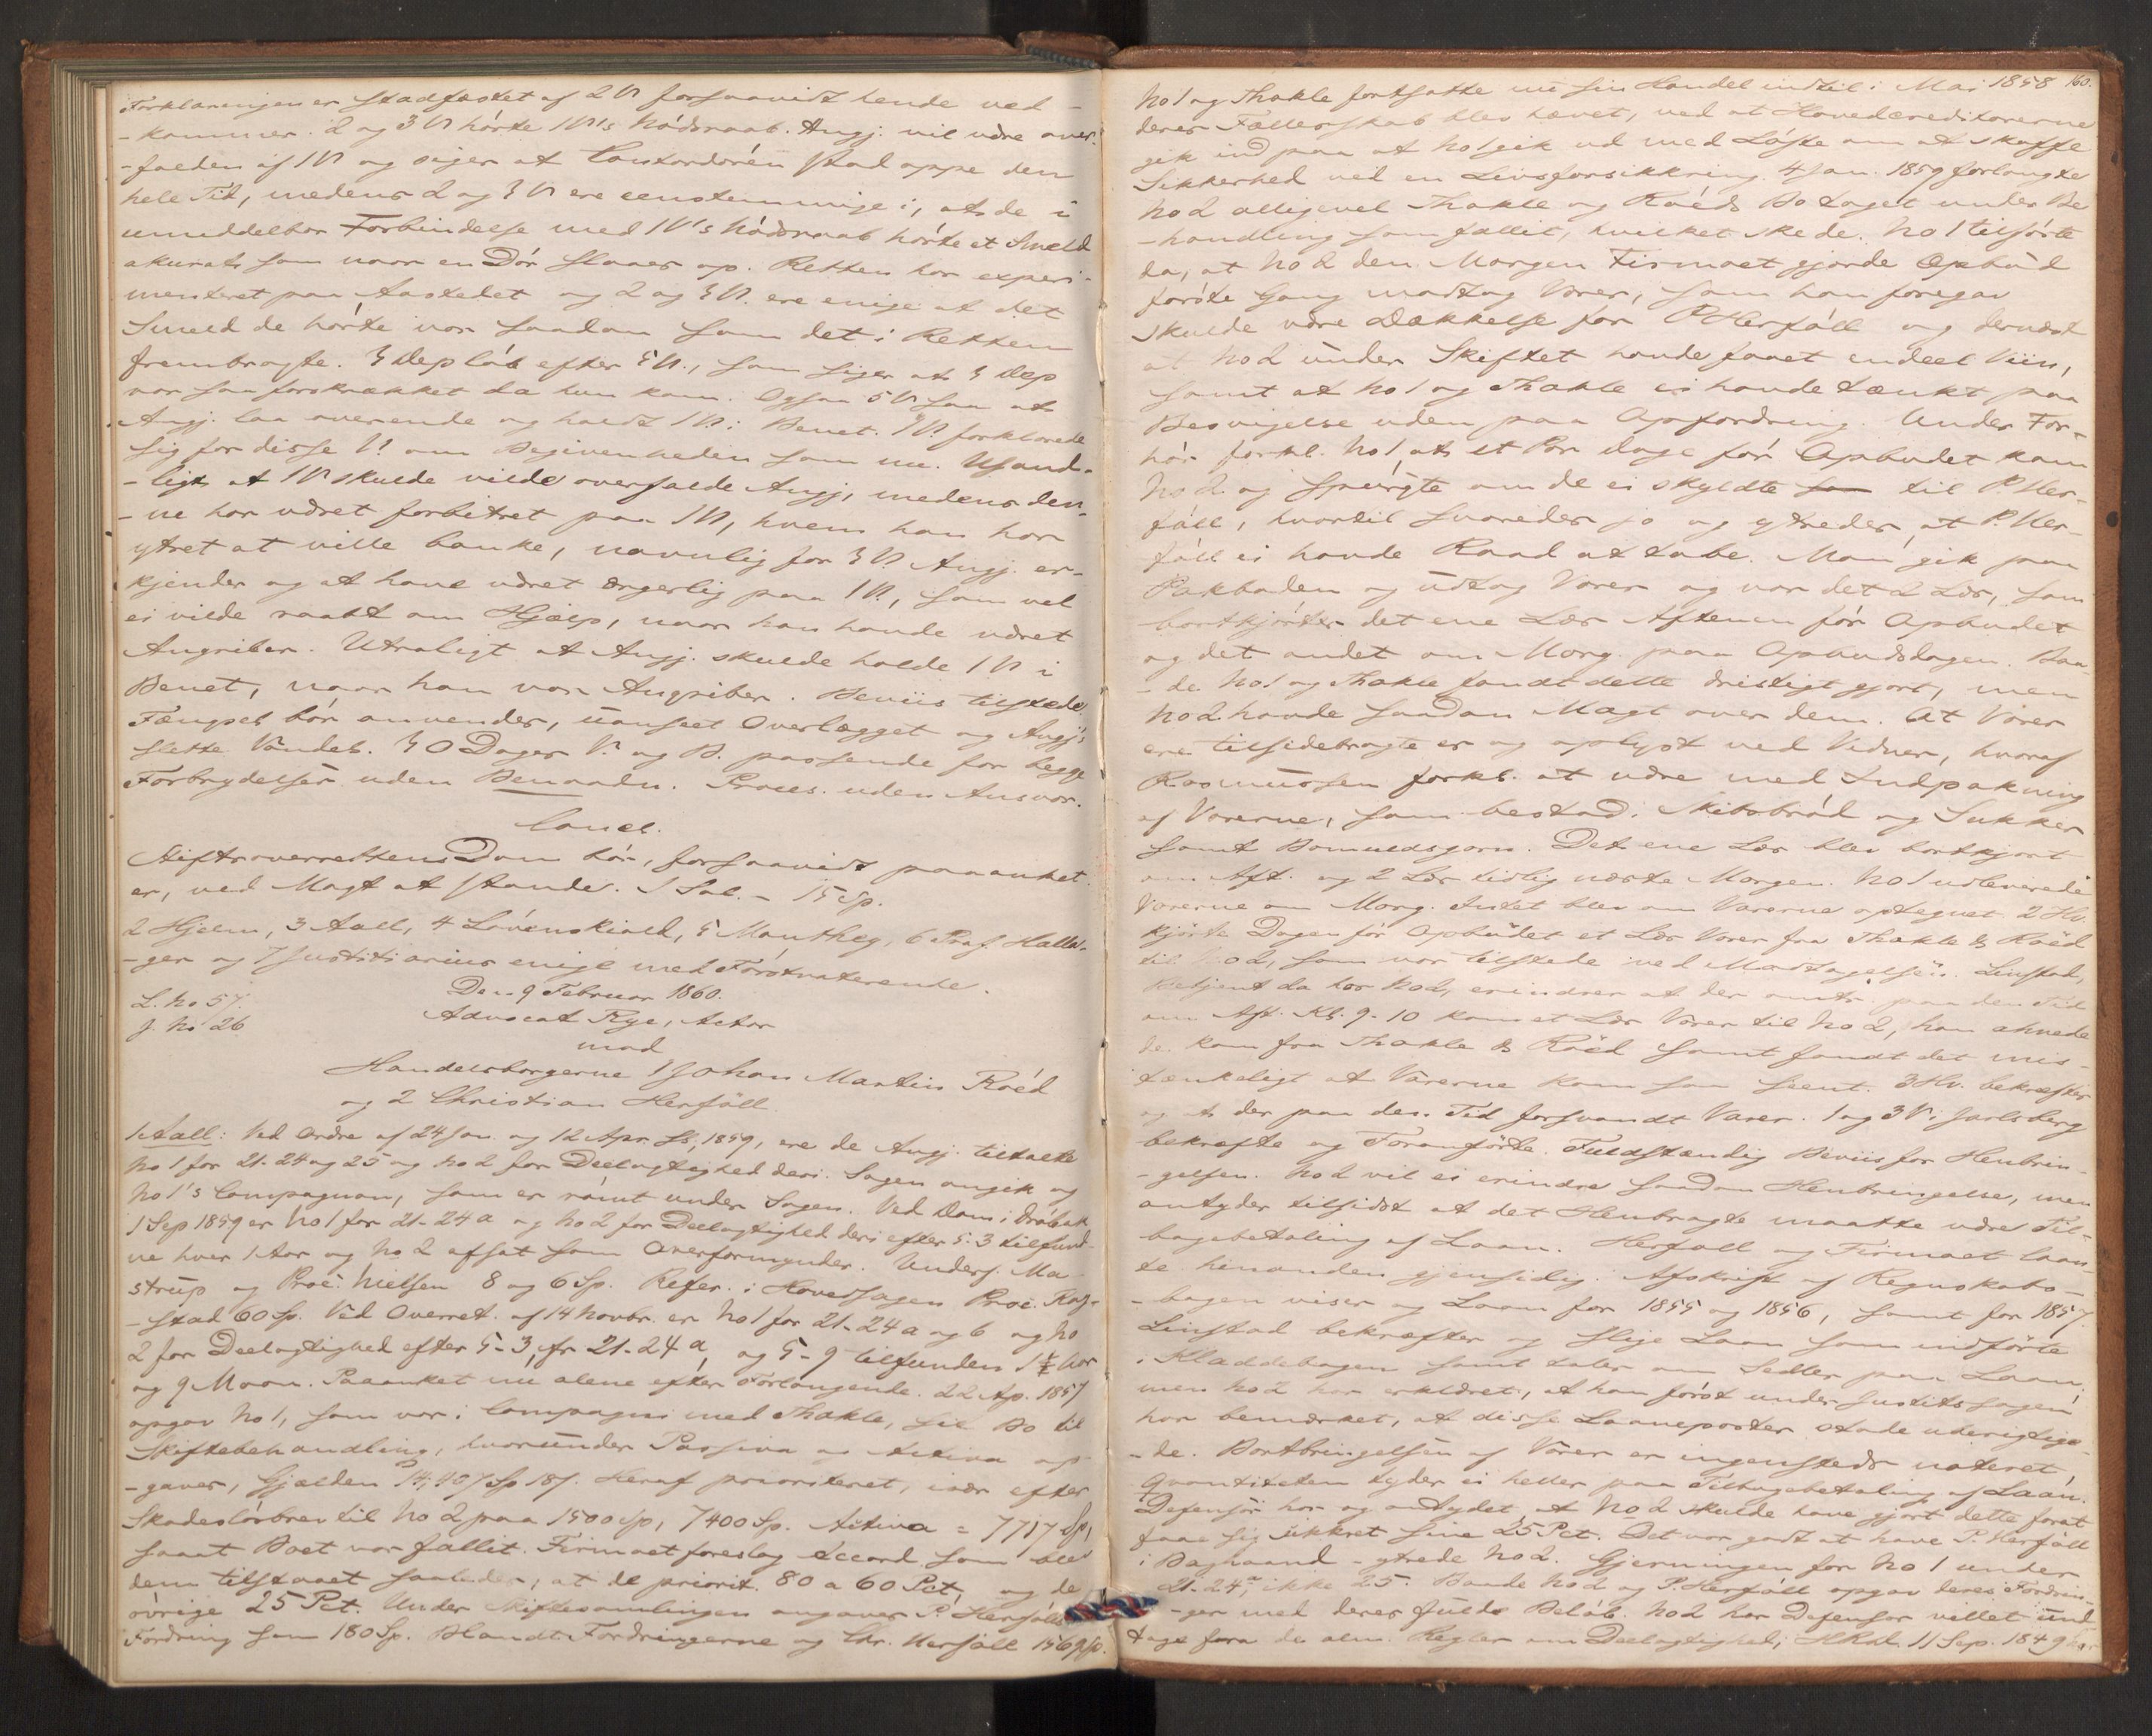 Forklaringen er stadfæstet af 2 V forsaavidt hende ved-
-kommer. 2 og 3 V hørte 1 V's Nødsraab. Angj. vil være over-
-falden af 1 V og siger at Contordøren stod oppe den
hele Tid, medens 2 og 3 V ere eenstemmige i, at de i
umiddelbar Forbindelse med 1 V's Nødsraab hørte et Smeld
akurat som naar en Dør slaaes op. Retten har experi-
menteret paa Aastedet og 2 og 3 V. ere enige at det
Smeld de hørte var saadan som det i Retten
frembragte. 3 Dep løb efter 5 V., som siger at 3 Dep
var saa forskrækket da hun kom. Ogsaa 5 V saa at
Angj. laa overende og holdt 1 V. i Benet. 1 V. forklarede
sig for disse V. om Begivenheden som nu. Usand-
-ligt at 1 V skulde vilde overfalde Angj., medens den-
-ne har været forbitret paa 1 V, hvem han har
ytret at ville banke, navnlig for 3 V. Angj. er-
kjender og at have været ærgerlig paa 1 V., som vel
ei vilde raabt om Hjælp, naar han havde været
Angriber. Utroligt at Angj. skulde holde 1 V i
Benet, naar han var Angriber. Beviis tilstede.
Fængsel bør anvendes, uanseet Overlægget og Angj's
slette Vandel. 30 Dages V. og B. passende for begge
Forbrydelser uden Benaadn. Proces. uden Ansvar.
Concl.
Stiftsoverrettens Dom bør, forsaavidt paaanket
er, ved Magt at stande. 1 Sal. - 15 Sp.
2 Hjelm, 3 Aall, 4 Løvenskiold, 5 Manthey, 6 Prof. Halla-
-ger og 7 Justitiarius enige med Førstvoterende.
L. No 57.
J. No 26.
Den 9 Februar 1860.
Advocat Rye, Actor
mod
Handelsborgerne 1 Johan Martin Roëd
og 2 Christian Herføll.
1 Aall: Ved Ordre af 24 Jan. og 12 Apr. 1859, ere de Angj. tiltalte
No 1 for 21-24 og 25 og No 2 for Deelagtighed deri. Sagen angik og
No 1's Compagnon, som er rømt under Sagen. Ved Dom i Drøbak
1 Sep 1859 er No 1 for 21-24 a og No 2 for Deelagtighed deri efter 5.3 tilfund-
ne hver 1 Aar og No 2 afsat som Overformynder. Unders. Ma-
strup og Proc. Nielsen 8 og 6 Sp. Refer. i Hovedsagen Proc.
-stad 60 Sp. Ved Overret. af 14 Novbr. er No 1 for 21-24 a og b og No
2 for Deelagtighed efter 5-3, fr 21-24 a, og 5-9 tilfunden 1 ½ Aar
og 9 Maan. Paaanket nu alene efter Forlangende. 22 Ap. 1857
opgav No 1, som var i Compagni med Thakle, sit Bo til
Skiftebehandling, hvorunder Passiva og Activa op-
-gaves, Gjælden 14,137 Sp 187. Heraf prioriteret, især efter
Skadesløsbrev til No 2 paa 1500 Sp, 7400 Sp. Activa = 7717 Sp,
saaat Boet var fallit. Firmaet foreslog Accord som blev
dem tilstaaet saaledes, at de priorit. 80 a 60 Pct. og de
øvrige 25 Pct. Under Skiftesamlingen angaves P. Herfølls
Fordring som 180 Sp. Blandt Fordringerne og Chr. Herføll 1569 Sp.
160.
No 1 og Thakle fortsatte nu sin Handel indtil i Mai 1858
deres Fællesskab blev hævet, ved at Hovedcreditorerne
gik ind paa at No 1 gik ud med Løfte om at skaffe
Sikkerhed ved en Livsforsikkring. 4 Jan. 1859 forlangte
No 2 alligevel Thakle og Roëds Bo taget under Be
-handling som fallit, hvilket skede. No 1 tilførte
da, at No 2 den Morgen Firmaet gjorde Opbud
første Gang modtog Varer, som han foregav
skulde være Dækkelse for P Herføll og dernæst
at No 2 under Skiftet havde faaet endeel Viin,
samt at No 1 og Thakle ei havde tænkt paa
Besvigelse uden paa Opfordring. Under For-
hør forkl. No 1 at et Par Dage før Opbudet kom
No 2 og spurgte om de ei skyldte til P. Her-
føll, hvortil svaredes jo og ytredes, at P. Her-
føll ei havde Raad at tabe. Man gik paa
Pakboden og udtog Varer og var det 2 Læs, som
bortkjørtes det ene Læs Aftenen før Opbudet
og det andet om Morg. paa Opbudsdagen. Baa-
-de No 1 og Thakle fandt dette dristigt gjort, men
No 2 havde saadan Magt over dem. At Varer
ere tilsidebragte er og oplyst ved Vidner, hvoraf
Rasmussen forkl. at være med Indpakning
af Varerne, som bestod i Skibsbrød og Sukker
samt Bomuldsgarn. Det ene Læs blev bortkjørt
om Aft. og 2 Læs tidlig næste Morgen. No 1 udleverede
Varerne om Morg. Intet blev om Varerne optegnet. 2 Hv.
kjørte Dagen før Opbudet et Læs Varer fra Thakle & Roëd
til No 2, som var tilstede ved Modtagelsen. Linstad,
Betjent da hos No 2, erindrer at der omtr. paa den Tid
om Aft. Kl. 9-10 kom et Læs Varer til No 2, han ahnede
de kom fra Thakle & Roëd samt fandt det mis-
tænkeligt at Varerne kom saa seent. 3 Hv. bekræfter
og at der paa den Tid forsvandt Varer. 1 og 3 V. Jarlsberg
bekræfte og Foranførte. Fuldstændig Beviis for Henbrin-
-gelsen. No 2 vil ei erindre saadan Henbringelse, men
antyder tilsidst at det Henbragte maatte være Til-
bagebetaling af Laan. Herføll og Firmaet laan-
te hinanden gjensidig. Afskrift af Regnskabs-
-bogen viser og Laan for 1855 og 1856, samt for 1857.
Linstad bekræfter og slige Laan som indførte
i Kladdebogen samt taler om Sedler paa Laan,
men No 2 har erklæret, at han først under Justitssagen
har bemærket, at disse Laaneposter stode uberigtige-
-de. Bortbringelsen af Varer er ingensteds noteret,
Qvantiteten tyder ei heller paa Tilbagebetaling af Laan.
Defensor har og antydet, at No 2 skulde have gjort dette forat
faae sig sikkret sine 25 Pct. Det var godt at have P. Herføll
i Baghaand - ytrede No 2. Gjerningen for No 1 under
21-24, a ikke 25. Baade No 2 og P. Herføll opgav deres Fordrin-
-ger med deres fulde Beløb. No 2 har Defensor villet und
tage fora de alm. Regler om Deelagtighed, HRd. 11 Sep. 1849 har